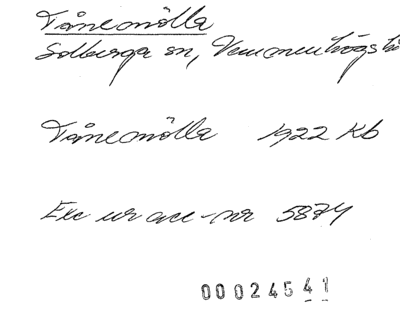 Tånemölla
Solberga sn, Vemmenhögs h
Tånemölla 1922 Kb
Exc ur acc-nr 5874
00024541